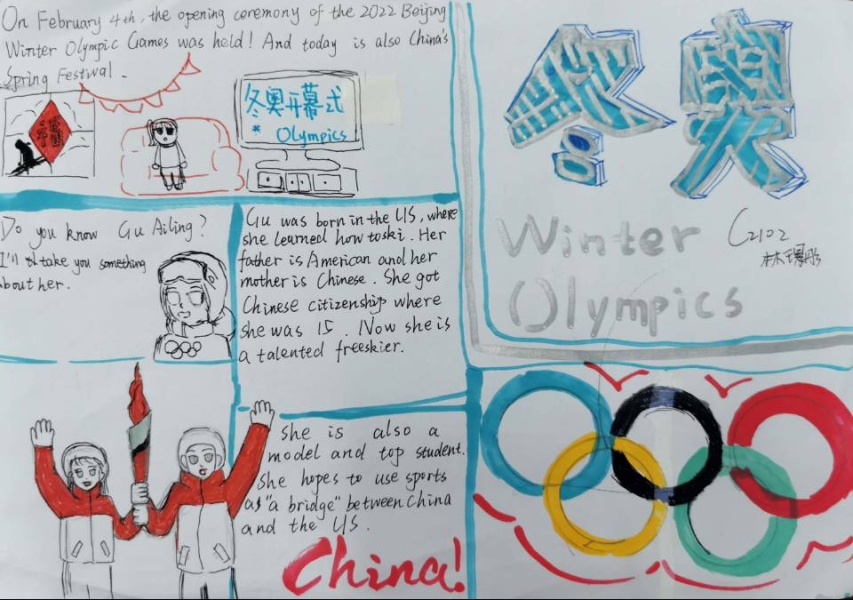 On February 4th, the opening ceremony of the 2022 Beijing
Winter Olympic Games was held! And today is also China's
Spring Festival.
冬奥开幕式
* Olympics
冬奥
Winter
Olympics
C2102
Do you know Gu Ailing?
take you something
about her.
Gu was born in the US, where
she learned how to ski. Her
father is American and her
mother is Chinese. She got
Chinese citizenship where
she was 15. Now she is
a talented freeskier.
She is also a
model and top student.
She hopes to use sports
as "a bridge" between China
and the US.
China!